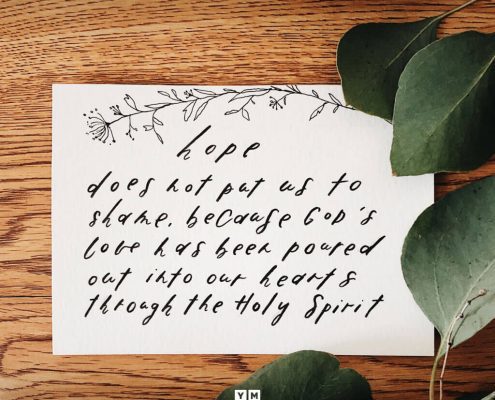 hope
does not put us to
shame, because God's
love has been poured
out into our hearts
through the Holy Spirit
Y|M